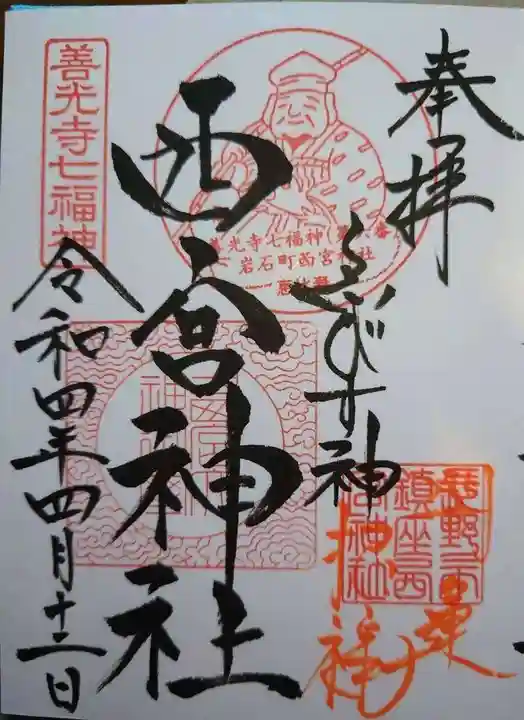 奉拝
ゑびす神
西宮神社
令和四年四月十二日
善光寺七福神
善光寺七福神(第六番)
岩石町西宮神社
恵比寿
長野市
鎮座西
宮神社